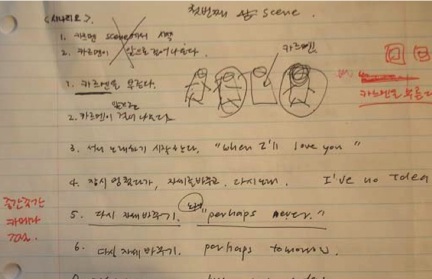 <시나리오>
첫번째 scene.
1. 카르멘 scene에서 시작
2. 카르멘이 앞으로 걸어나온다.
카르멘
1. 카르멘을 부른다.
카르멘을 부른다
2. 카르멘이 걸어 나온다.
3. 서서 노래하기 시작한다. "When I'll love you"
4. 잠시 멈췄다가, 자세를 바꾸고. 다시 노래. I've no Idea
5. 다시 자세 바꾸기. 노래 "perhaps never."
중간중간
6. 다시 자세 바꾸기. perhaps tomorrow.